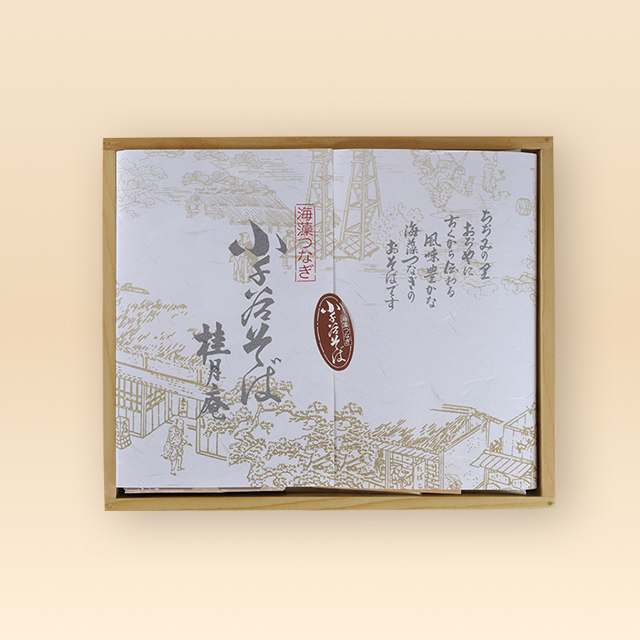 ちぢみの里
おぢやに
古くから伝わる
風味豊かな
海藻つなぎの
おそばです
海藻つなぎ
小千谷そば
桂月庵
海藻つなぎ
小千谷そば